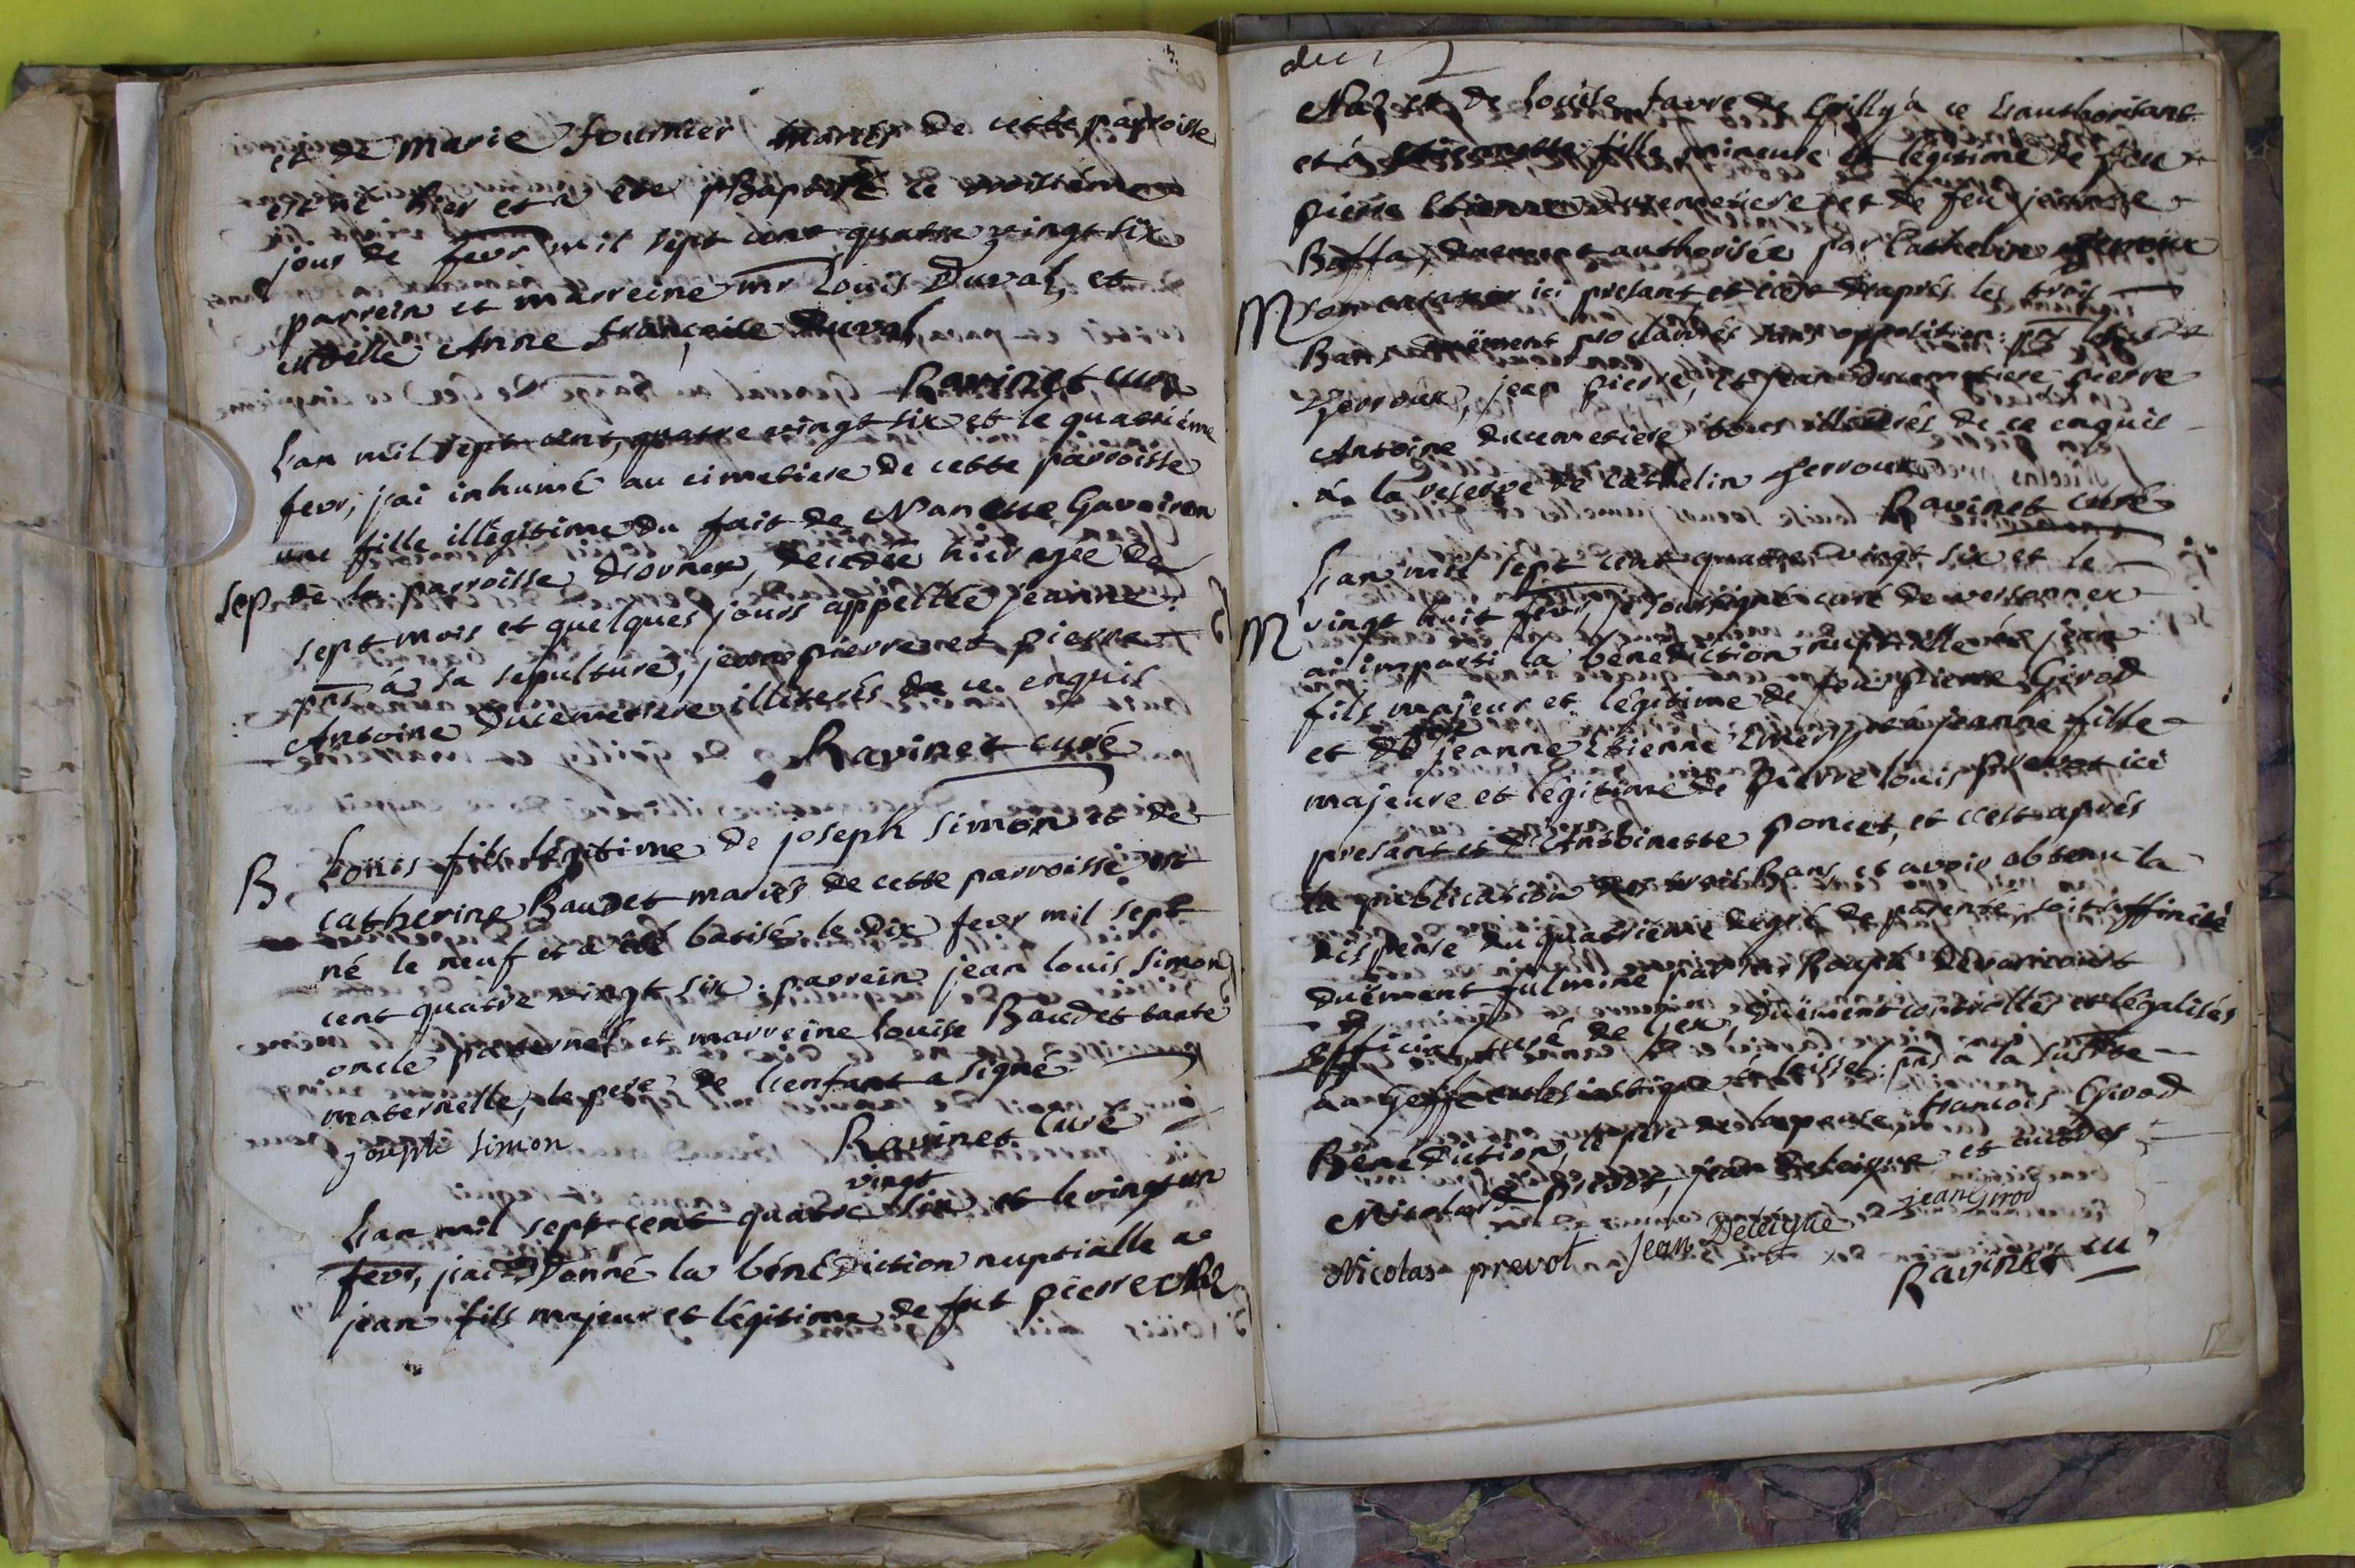 et de marie fournier mariés de cette parroisse
est né hier et a été Baptisé le troisième
jour de fevr mil sept cent quatre vingt six
parrein et marreine mr Louis Duval, et
delle Anne françoise Duval
Ravinet curé
L'an mil sept cent quatre vingt six et le quatriéme
fevr, j'ai inhumé au cimetiere de cette parroisse
une fille illégitime du fait de Nanette
Sep. de la parroisse d'ornex, décédée hier agée de
sept mois et quelques jours appellée jeanne.
pns à sa sepulture, jean pierre et pierre
Antoine Ducemetiere illiterés de ce enquis
Ravinet curé
B. Louis fils légitime de joseph Simon et de
catherine Baudet mariés de cette parroisse est
né le neuf et a été batisé le dix fevr mil sept
cent quatre vingt six. parrein jean louis Simon
oncle paternel et marreine louise Baudet tante
maternelle, le pere de l'enfant a signé
joseph simon
Ravinet Curé
vingt
L'an mil sept cent quatre six et le vingt un
fevr, j'ai donné la bénédiction nuptialle a
jean fils majeur et légitime de fut pierre
duc
et de Louise favre de Grilly à ce l'authorisant
et à fille mineure et légitime de feu
pierre Ducemetiere et de feu jeanne
Baffa, duement authorisée par Cathelin Perroux
M
son ici presant et ce d'aprés les trois
Bans duëment proclamés sans opposition. pns
Perroux, jean pierre, et jean Ducemetiere, pierre
Antoine ducemetiere tous illiterés de ce enquis
à la reserve de Cathelin Perroux
Ravinet curé
L'an mil sept cent quatre vingt six et le
M vingt huit fevr, je soussigné curé de versonnex
ai imparti la bénédiction nuptialle à jean
fils majeur et légitime de feu pierre Girod
et de jeanne Etienne Emery, et à jeanne fille
majeure et légitime de Pierre louis Prevot ici
presant et d'Anthoinette poncet, et c'est aprés
la publication des trois Bans, et avoir obtenu la
dispense du quatrième degré de parenté, soit affinité
duëment fulminé par mr Rouph devaricourt
official curé de Gex, duëment controllés et légalisés
au Greffe ecclésiastique pns a la susdte
Bénédiction, le pere de l'epouse, francois Girod
Nicolas prevot, jean Deleigue et autres
Nicolas prevot jean Deleigue jean Girod
Ravinet cu